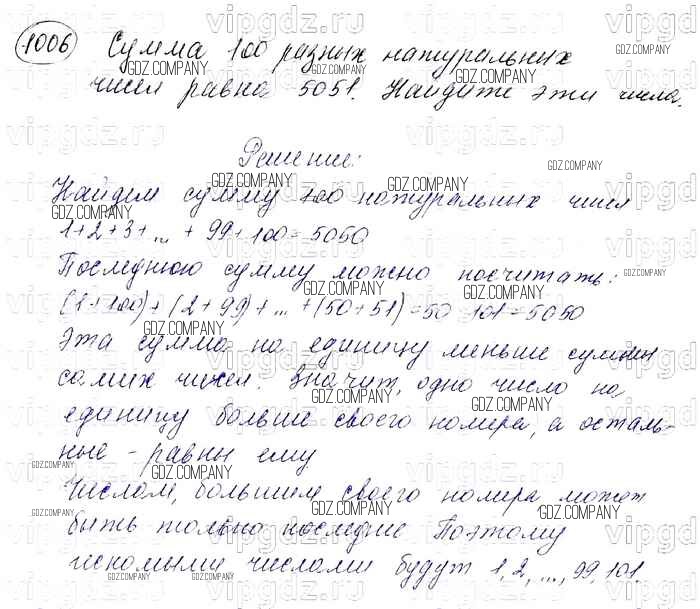 1006 Сумма 100 разных натуральных
чисел равна 5051. Найдите эти числа.
Решение:
Найдем сумму 100 натуральных чисел
1+2+3+...+99+100=5050
Последнюю сумму можно посчитать:
(1+100)+(2+99)+...+(50+51)=50 101=5050
Эта сумма на единицу меньше суммы
самих чисел. Значит, одно число на
единицу больше своего номера, а осталь-
ные - равны ему
Числом, большим своего номера может
быть только последнее Поэтому
искомыми числами будут 1,2,...,99,101.